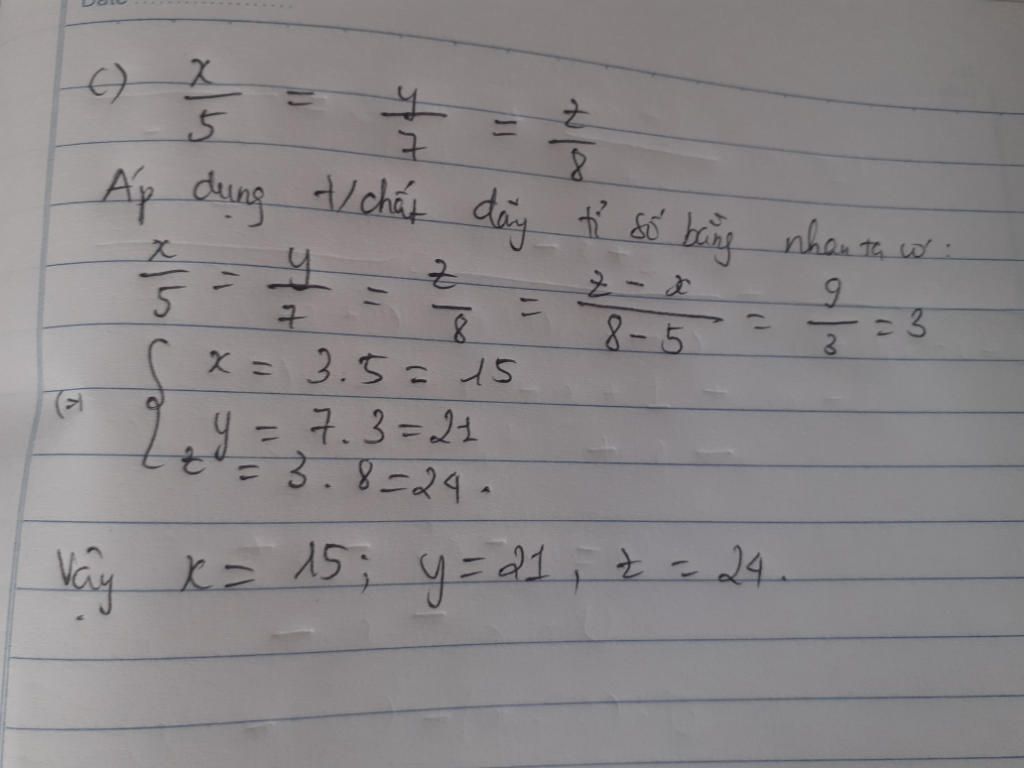 Date
c) x/5 = y/7 = z/8
Áp dụng t/chất dãy tỉ số bằng nhau ta có:
x/5 = y/7 = z/8 = (z - x)/(8 - 5) = 9/3 = 3
(=) { x = 3.5 = 15
y = 7.3 = 21
z = 3.8 = 24.
Vậy x = 15; y = 21; z = 24.